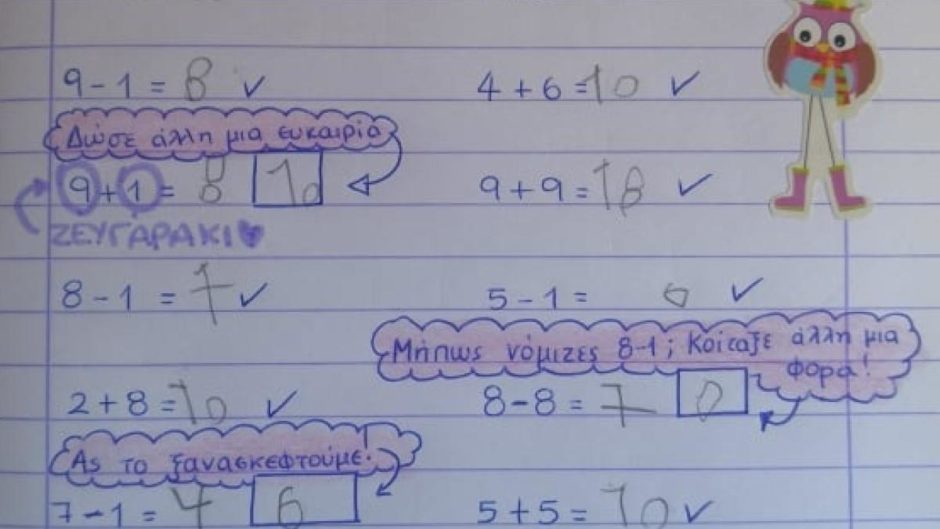 9 - 1 = 8 ✓ 4 + 6 = 10 ✓
Δώσε άλλη μια ευκαιρία
9 + 1 = 8 10 9 + 9 = 18 ✓
ΖΕΥΓΑΡΑΚΙ
8 - 1 = 7 ✓ 5 - 1 = 0 ✓
Μήπως νόμιζες 8-1; Κοίταξε άλλη μια
φορά!
2 + 8 = 10 ✓ 8 - 8 = 7 0
Ας το ξανασκεφτούμε!
7 - 1 = 4 6 5 + 5 = 10 ✓